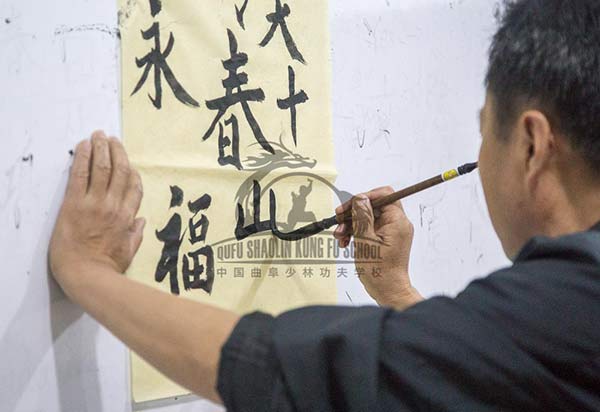 十
春山
永福
QUFU SHAOLIN KUNG FU SCHOOL
中国曲阜少林功夫学校